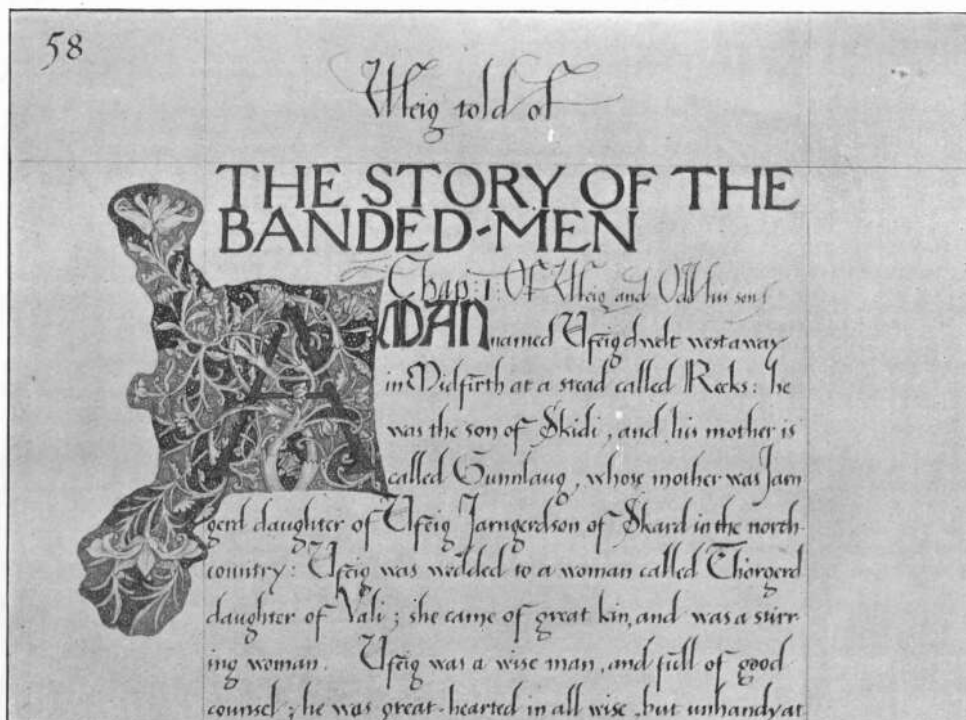 58
Ufeig told of
THE STORY OF THE
BANDED-MEN
Chap: 1: Of Ufeig and Odd his son
A MAN
named Ufeig dwelt west away
in Midfirth at a stead called Reeks: he
was the son of Skidi, and his mother is
called Gunnlaug, whose mother was Jarn
gerd daughter of Ufeig Jarngerdson of Skard in the north
country: Ufeig was wedded to a woman called Thorgerd
daughter of Vali; she came of great kin, and was a stirr
ing woman. Ufeig was a wise man, and full of good
counsel; he was great-hearted in all wise, but unhandy at